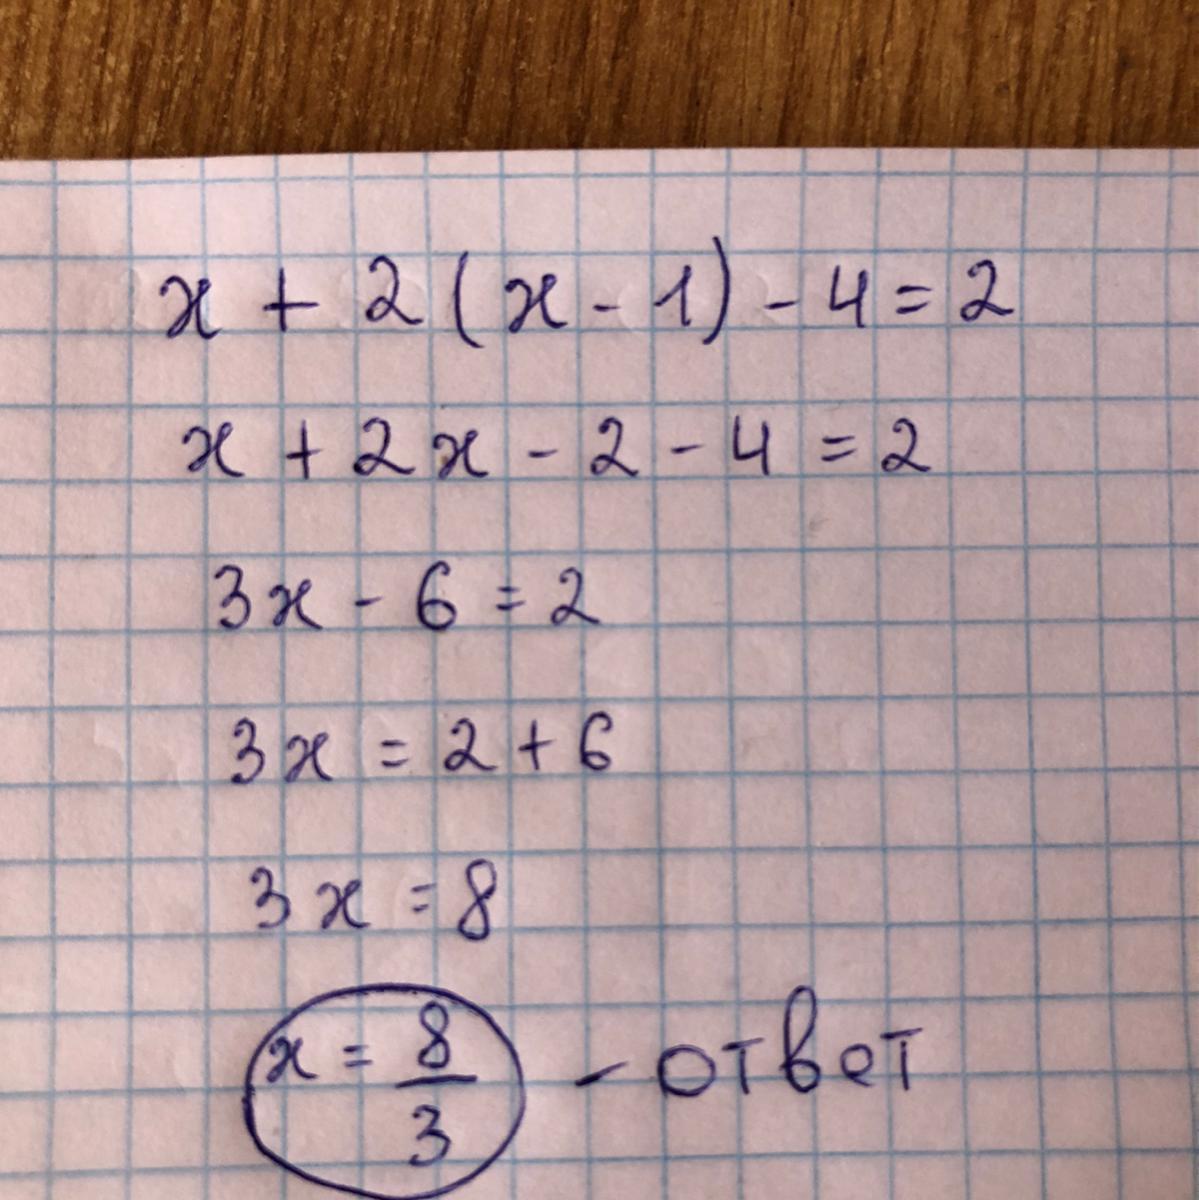 x + 2 (x - 1) - 4 = 2
x + 2x - 2 - 4 = 2
3x - 6 = 2
3x = 2 + 6
3x = 8
x = 8/3 - ответ